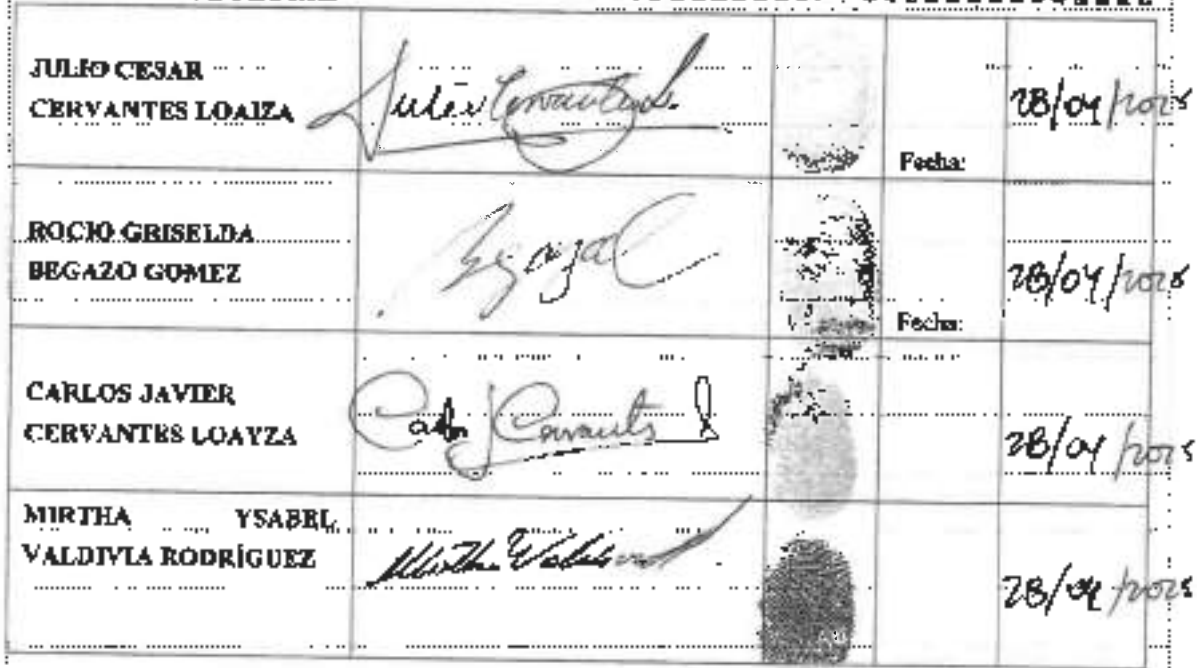 JULIO CESAR
CERVANTES LOAIZA
Julio Cervantes L.
Fecha:
28/04/2025
ROCIO GRISELDA
BEGAZO GOMEZ
Begazo
Fecha:
28/04/2025
CARLOS JAVIER
CERVANTES LOAYZA
Carlos J Cervantes L
28/04/2025
MIRTHA YSABEL
VALDIVIA RODRÍGUEZ
Mirtha Valdivia
28/04/2025